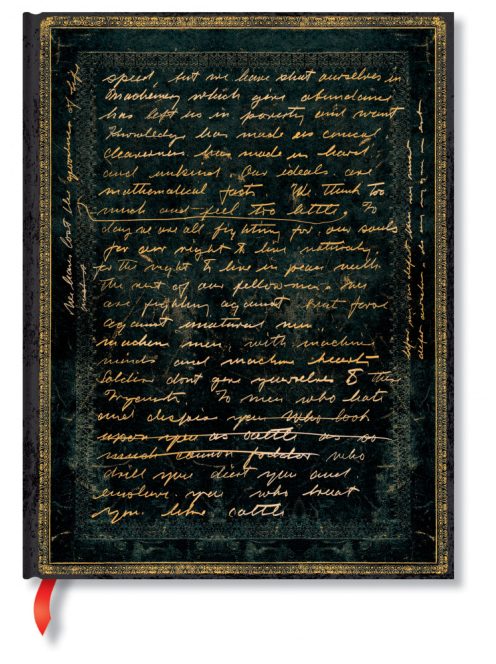 speed, but we have shut ourselves in
Machinery which give abundance
has left us in poverty and want
Knowledge has made us cynical
Cleaverness has made us hard
and unkind. Our ideals are
mathematical fact. We think too
much and feel too little. To
day we are all fighting for our souls
for our right to live naturally
for the right to live in peace with
the rest of our fellowmen. We
are fighting against
against unatural men
machine men, with machine
minds and machine hearts
Soldiers dont give yourselves to these
Tryants. To men who hate
and despise you who look
upon you as cattle as so
much cannon fodder who
drill you diet you and
enslave you who treat
you like cattle
We have lost the goodness of life